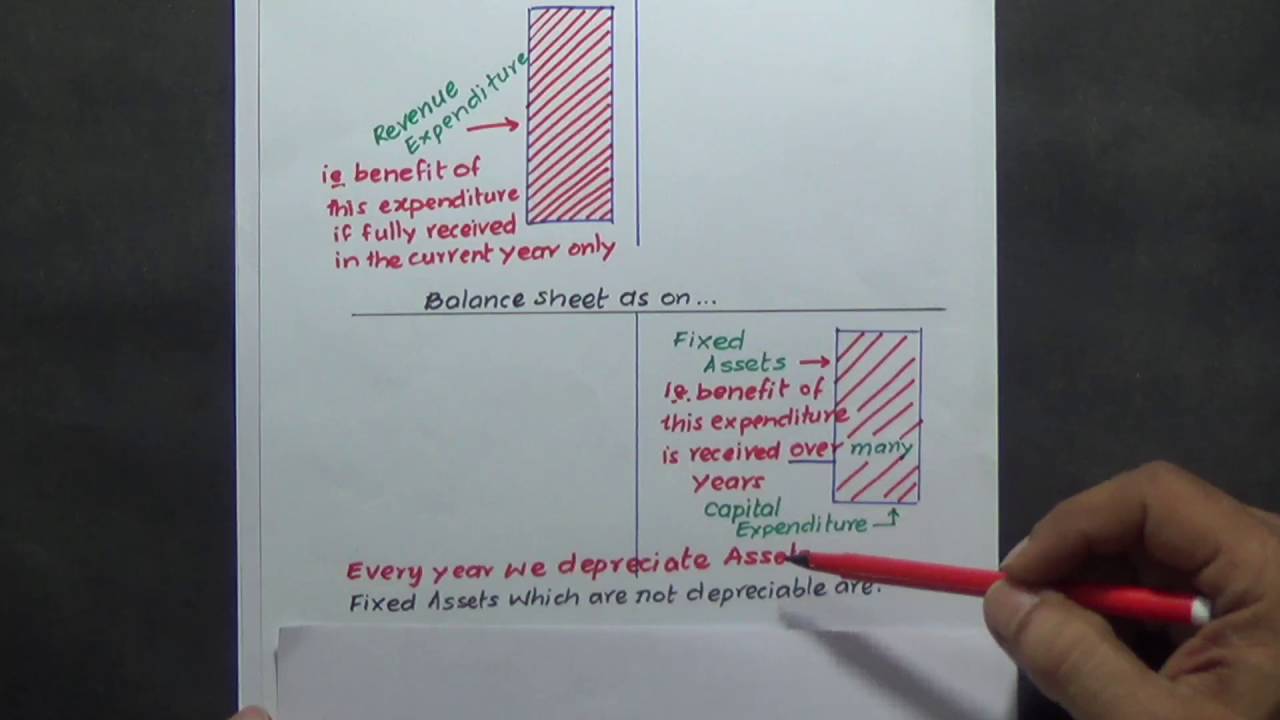 Revenue
Expenditure
ie benefit of
this expenditure
if fully received
in the current year only
Balance sheet as on...
Fixed
Assets
ie. benefit of
this expenditure
is received over many
years
Capital
Expenditure
Every year we depreciate Assets
Fixed Assets which are not depreciable are.